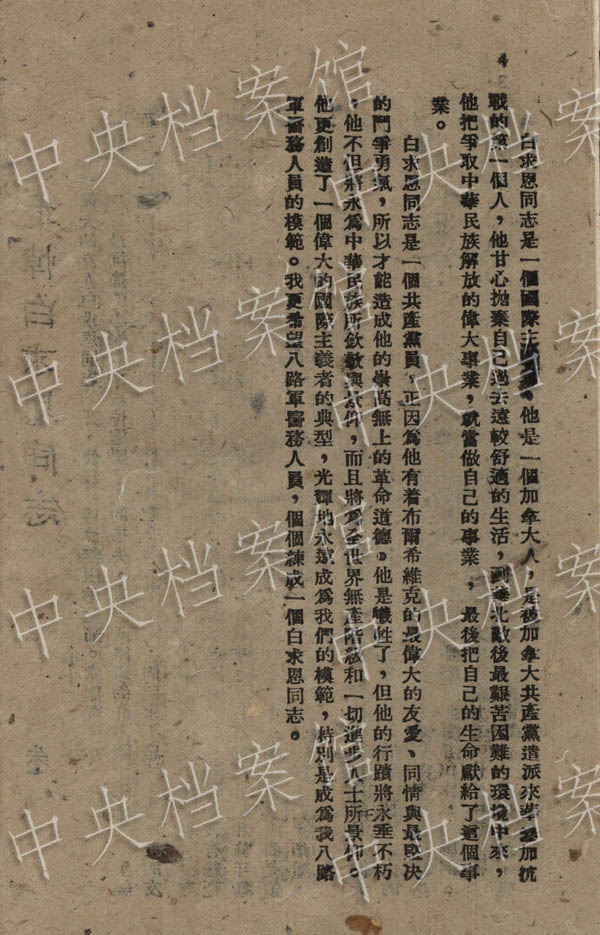 4
白求恩同志是一個國際主 他是一個加拿大人，是被加拿大共產黨遣派來華參加抗
戰的第一個人，他甘心拋棄自己過去遠較舒適的生活，到華北敵後最艱苦困難的環境中來，
他把爭取中華民族解放的偉大事業，就當做自己的事業，最後把自己的生命獻給了這個事
業。
白求恩同志是一個共產黨員，正因為他有着布爾希維克的最偉大的友愛、同情與最堅決
的鬥爭勇氣，所以才能造成他的崇高無上的革命道德。他是犧牲了，但他的行蹟將永垂不朽
，他不但將永爲中華民族所欽敬與景仰，而且將爲全世界無產階級和一切進步人士所景仰。
他更創造了一個偉大的國際主義者的典型，光輝地永遠成爲我們的模範，特別是成爲我八路
軍醫務人員的模範。我更希望八路軍醫務人員，個個練成一個白求恩同志。
中央档案馆
中央档案馆
中央档案馆
中央档案馆
中央档案馆
中央档案馆
中央档案馆
中央档案馆